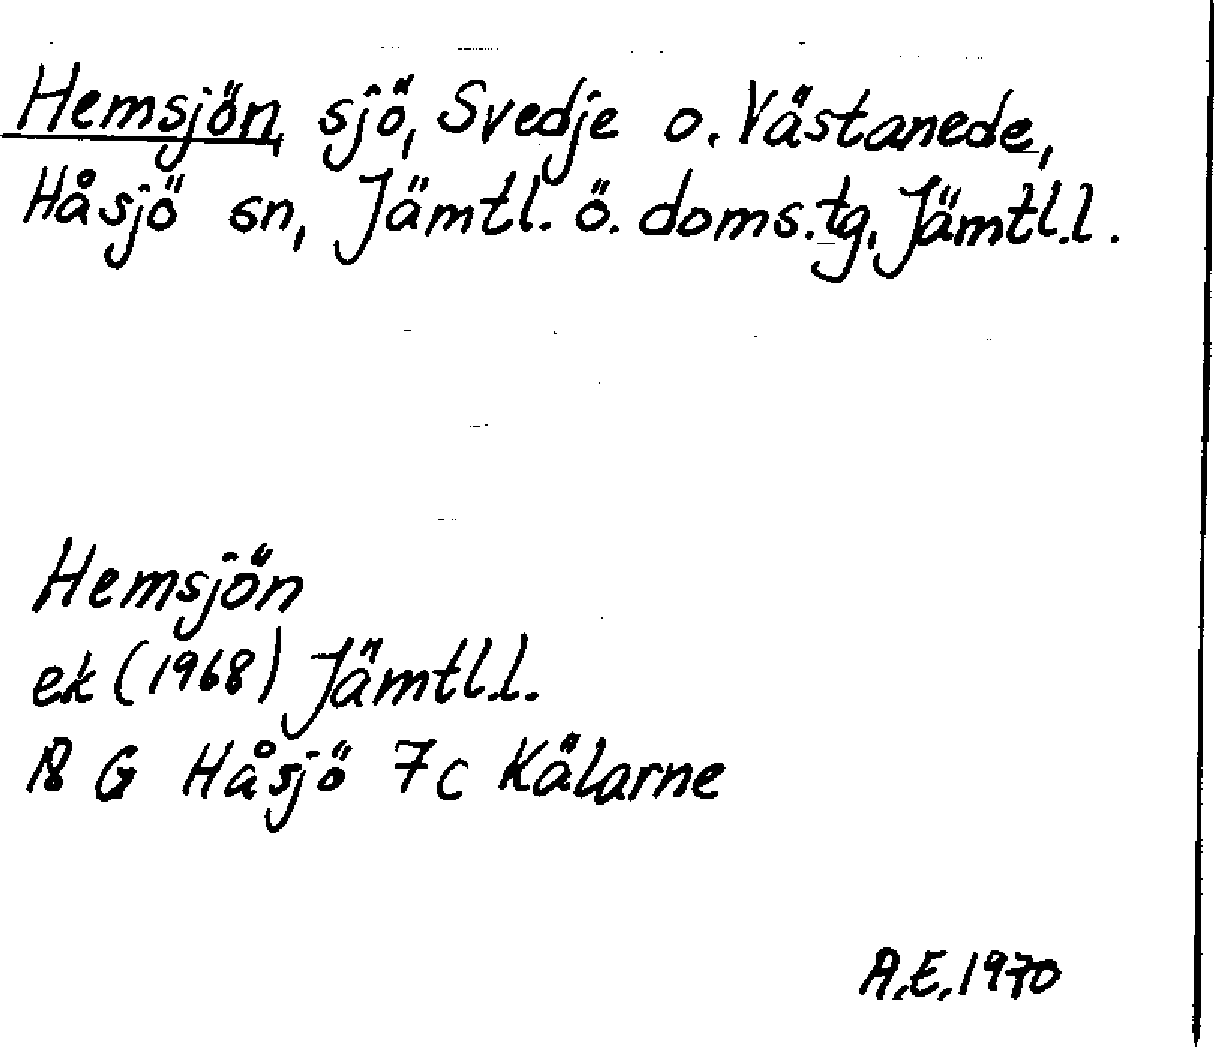 Hemsjön, sjö, Svedje o. Västanede,
Håsjö sn, Jämtl. ö. doms.tg, Jämtl.l.
Hemsjön
ek (1968) Jämtl.l.
18 G Håsjö 7c Kälarne
A.E. 1970